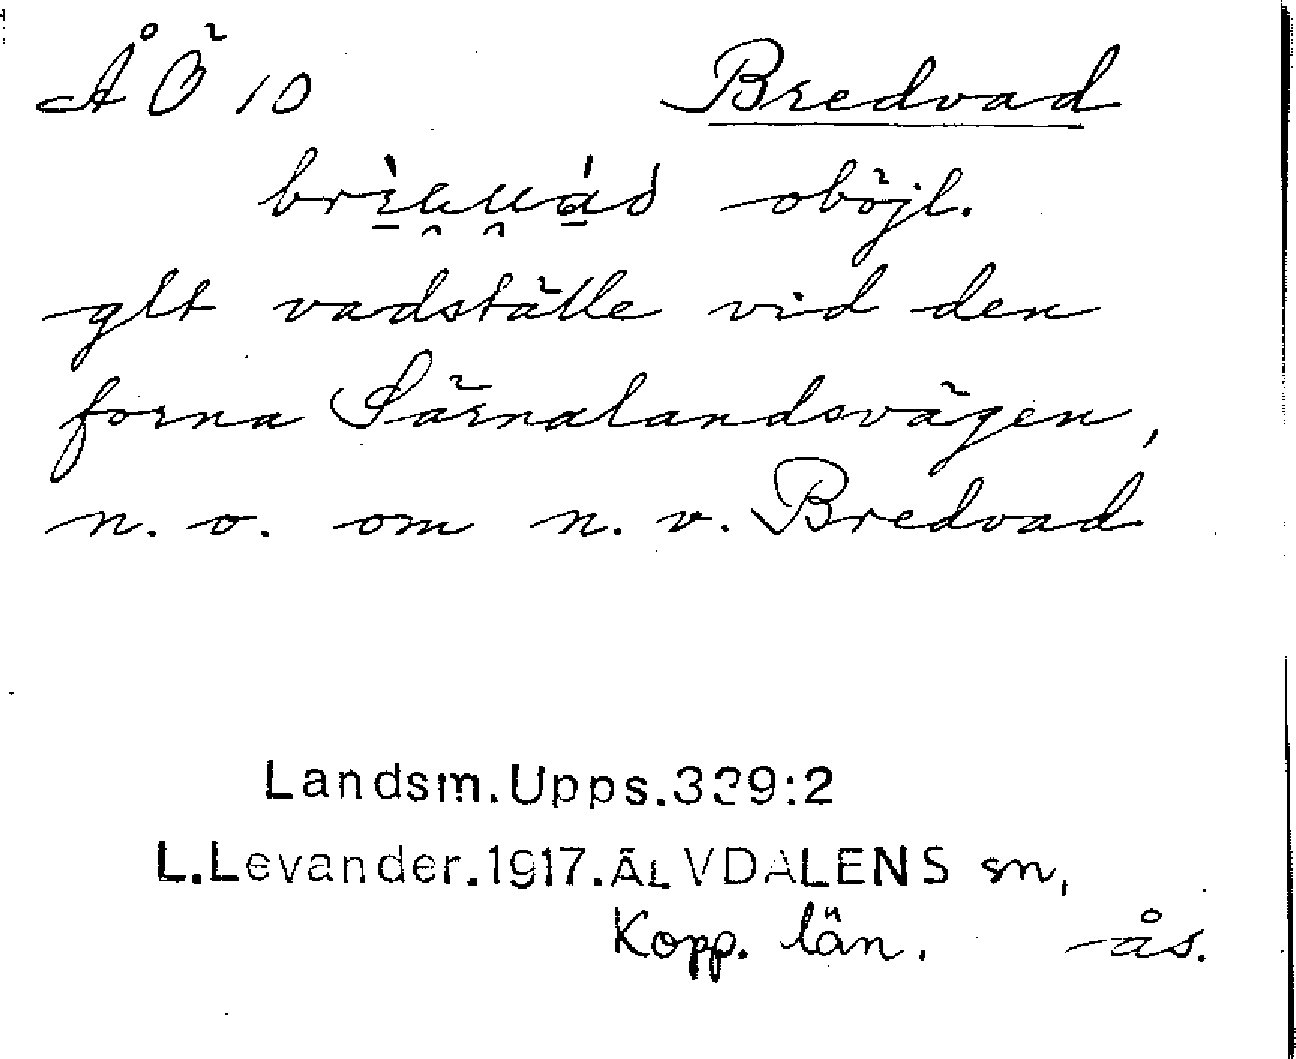 ÅÖ 10 Bredvad
oböjl.
glt vadställe vid den
forna Särnalandsvägen,
n. o. om n. v. Bredvad
Landsm.Upps.339:2
L.Levander.1917.ÄLVDALENS sn,
Kopp. län. ås.